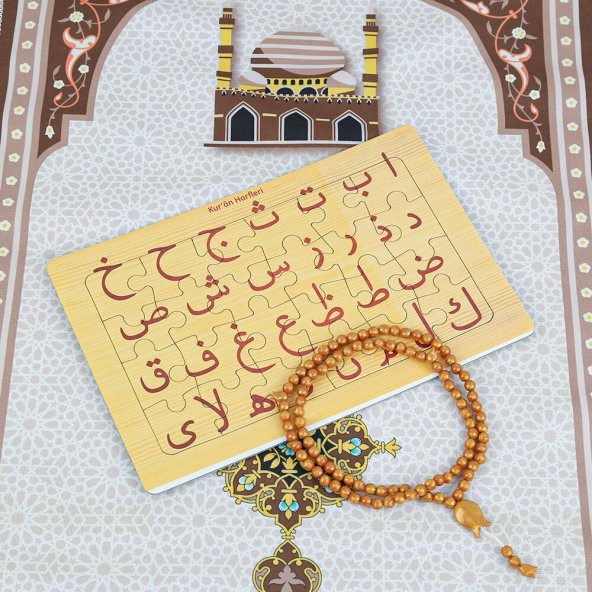 Kur'ân Harfleri
ا ب ت ث ج ح خ
د ذ ر ز س ش ص
ض ط ظ ع غ ف ق
ك ل ن ه لا ی